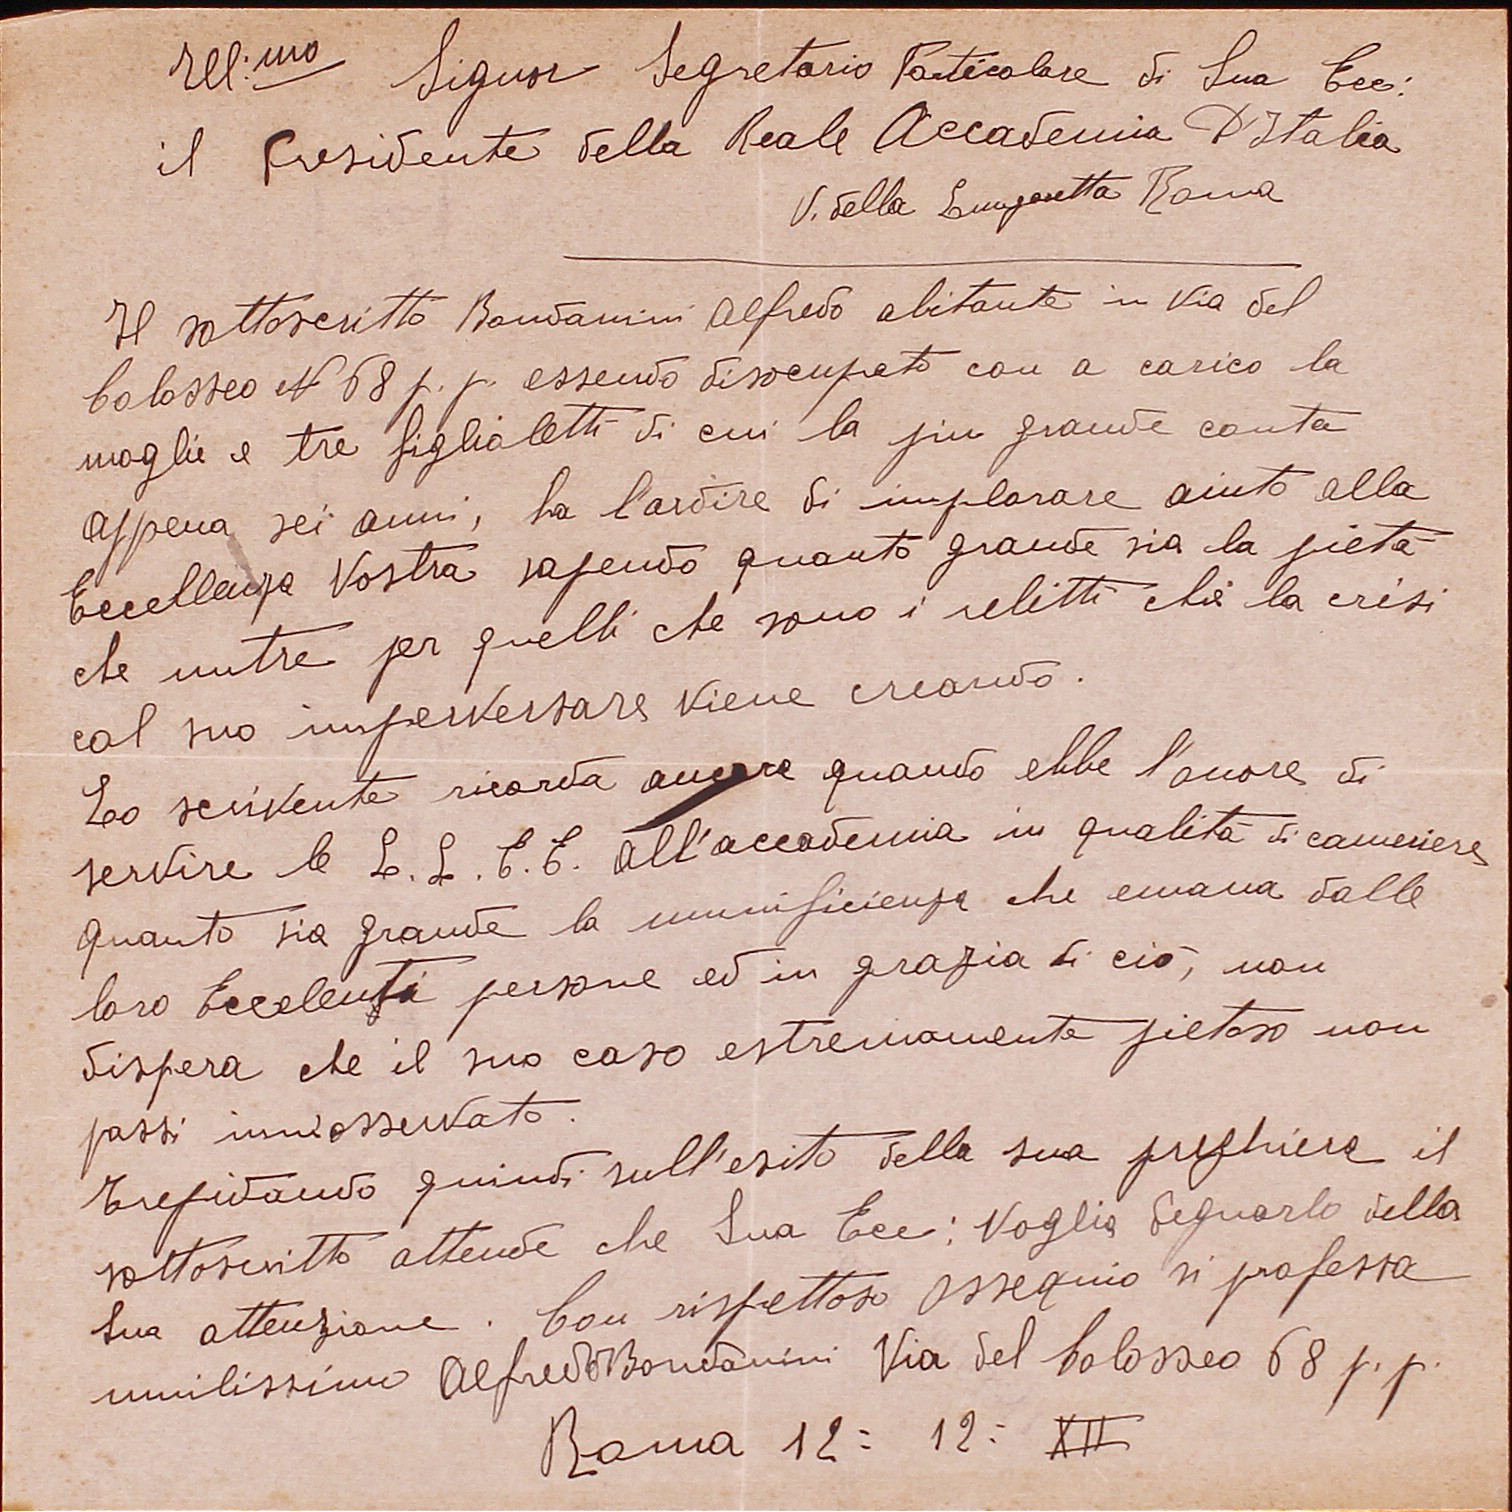 Ill:mo Signor Segretario Particolare di Sua Ecc:
il Presidente della Reale Accademia D'Italia
V. della Lungaretta Roma
Il sottoscritto Bondanini Alfredo abitante in Via del
Colosseo N 68 p. p. essendo disocupato con a carico la
moglie e tre figlioletti di cui la piu grande conta
appena sei anni, ha l'ardire di implorare aiuto alla
Eccellenza Vostra sapendo quanto grande sia la pietà
che nutre per quelli che sono i relitti che la crisi
col suo imperversare viene creando.
Lo scrivente ricorda ancora quando ebbe l'onore di
servire le L. L. E. E. all'accademia in qualità di cameriere
quanto sia grande la munificienza che emana dalle
loro Eccelenti persone ed in grazia di ciò, non
dispera che il suo caso estremamente pietoso non
passi inniosservato.
Trepidando quindi sull'esito della sua preghiera il
sottoscritto attende che Sua Ecc: Voglia degnarlo della
Sua attenzione. Con rispettoso ossequio si professa
umilissimo Alfredo Bondanini Via del Colosseo 68 p. p.
Roma 12= 12= XII